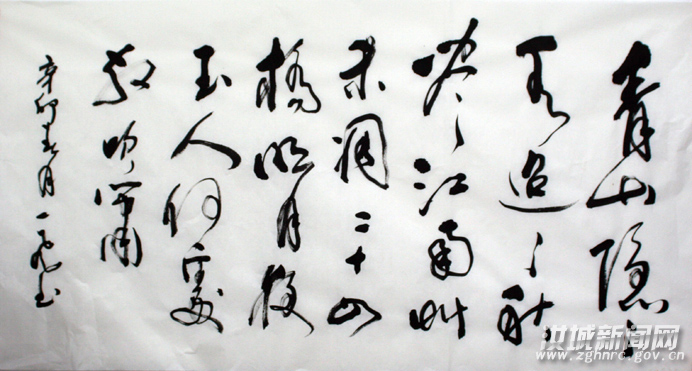 青山隱〻
水迢〻秋
尽江南艸
未凋二十四
橋明月夜
玉人何處
教吹簫
辛卯春月一飞书
洪城新闻网
www.zghnrc.gov.cn